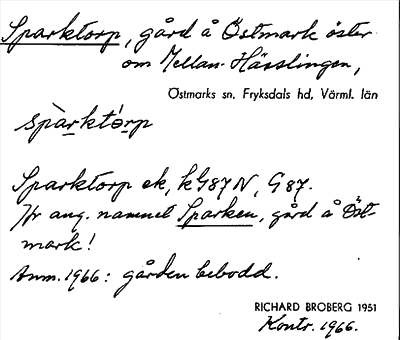 Sparktorp, gård å Östmark öster
om Mellan-Hässlingen,
Östmarks sn, Fryksdals hd, Värml. län
spàrktórp
Sparktorp ek, k G87 N, G 87.
Hr ang. namnet Sparken, gård å Öst-
mark!
Anm. 1966: gården bebodd.
RICHARD BROBERG 1951
Kontr. 1966.